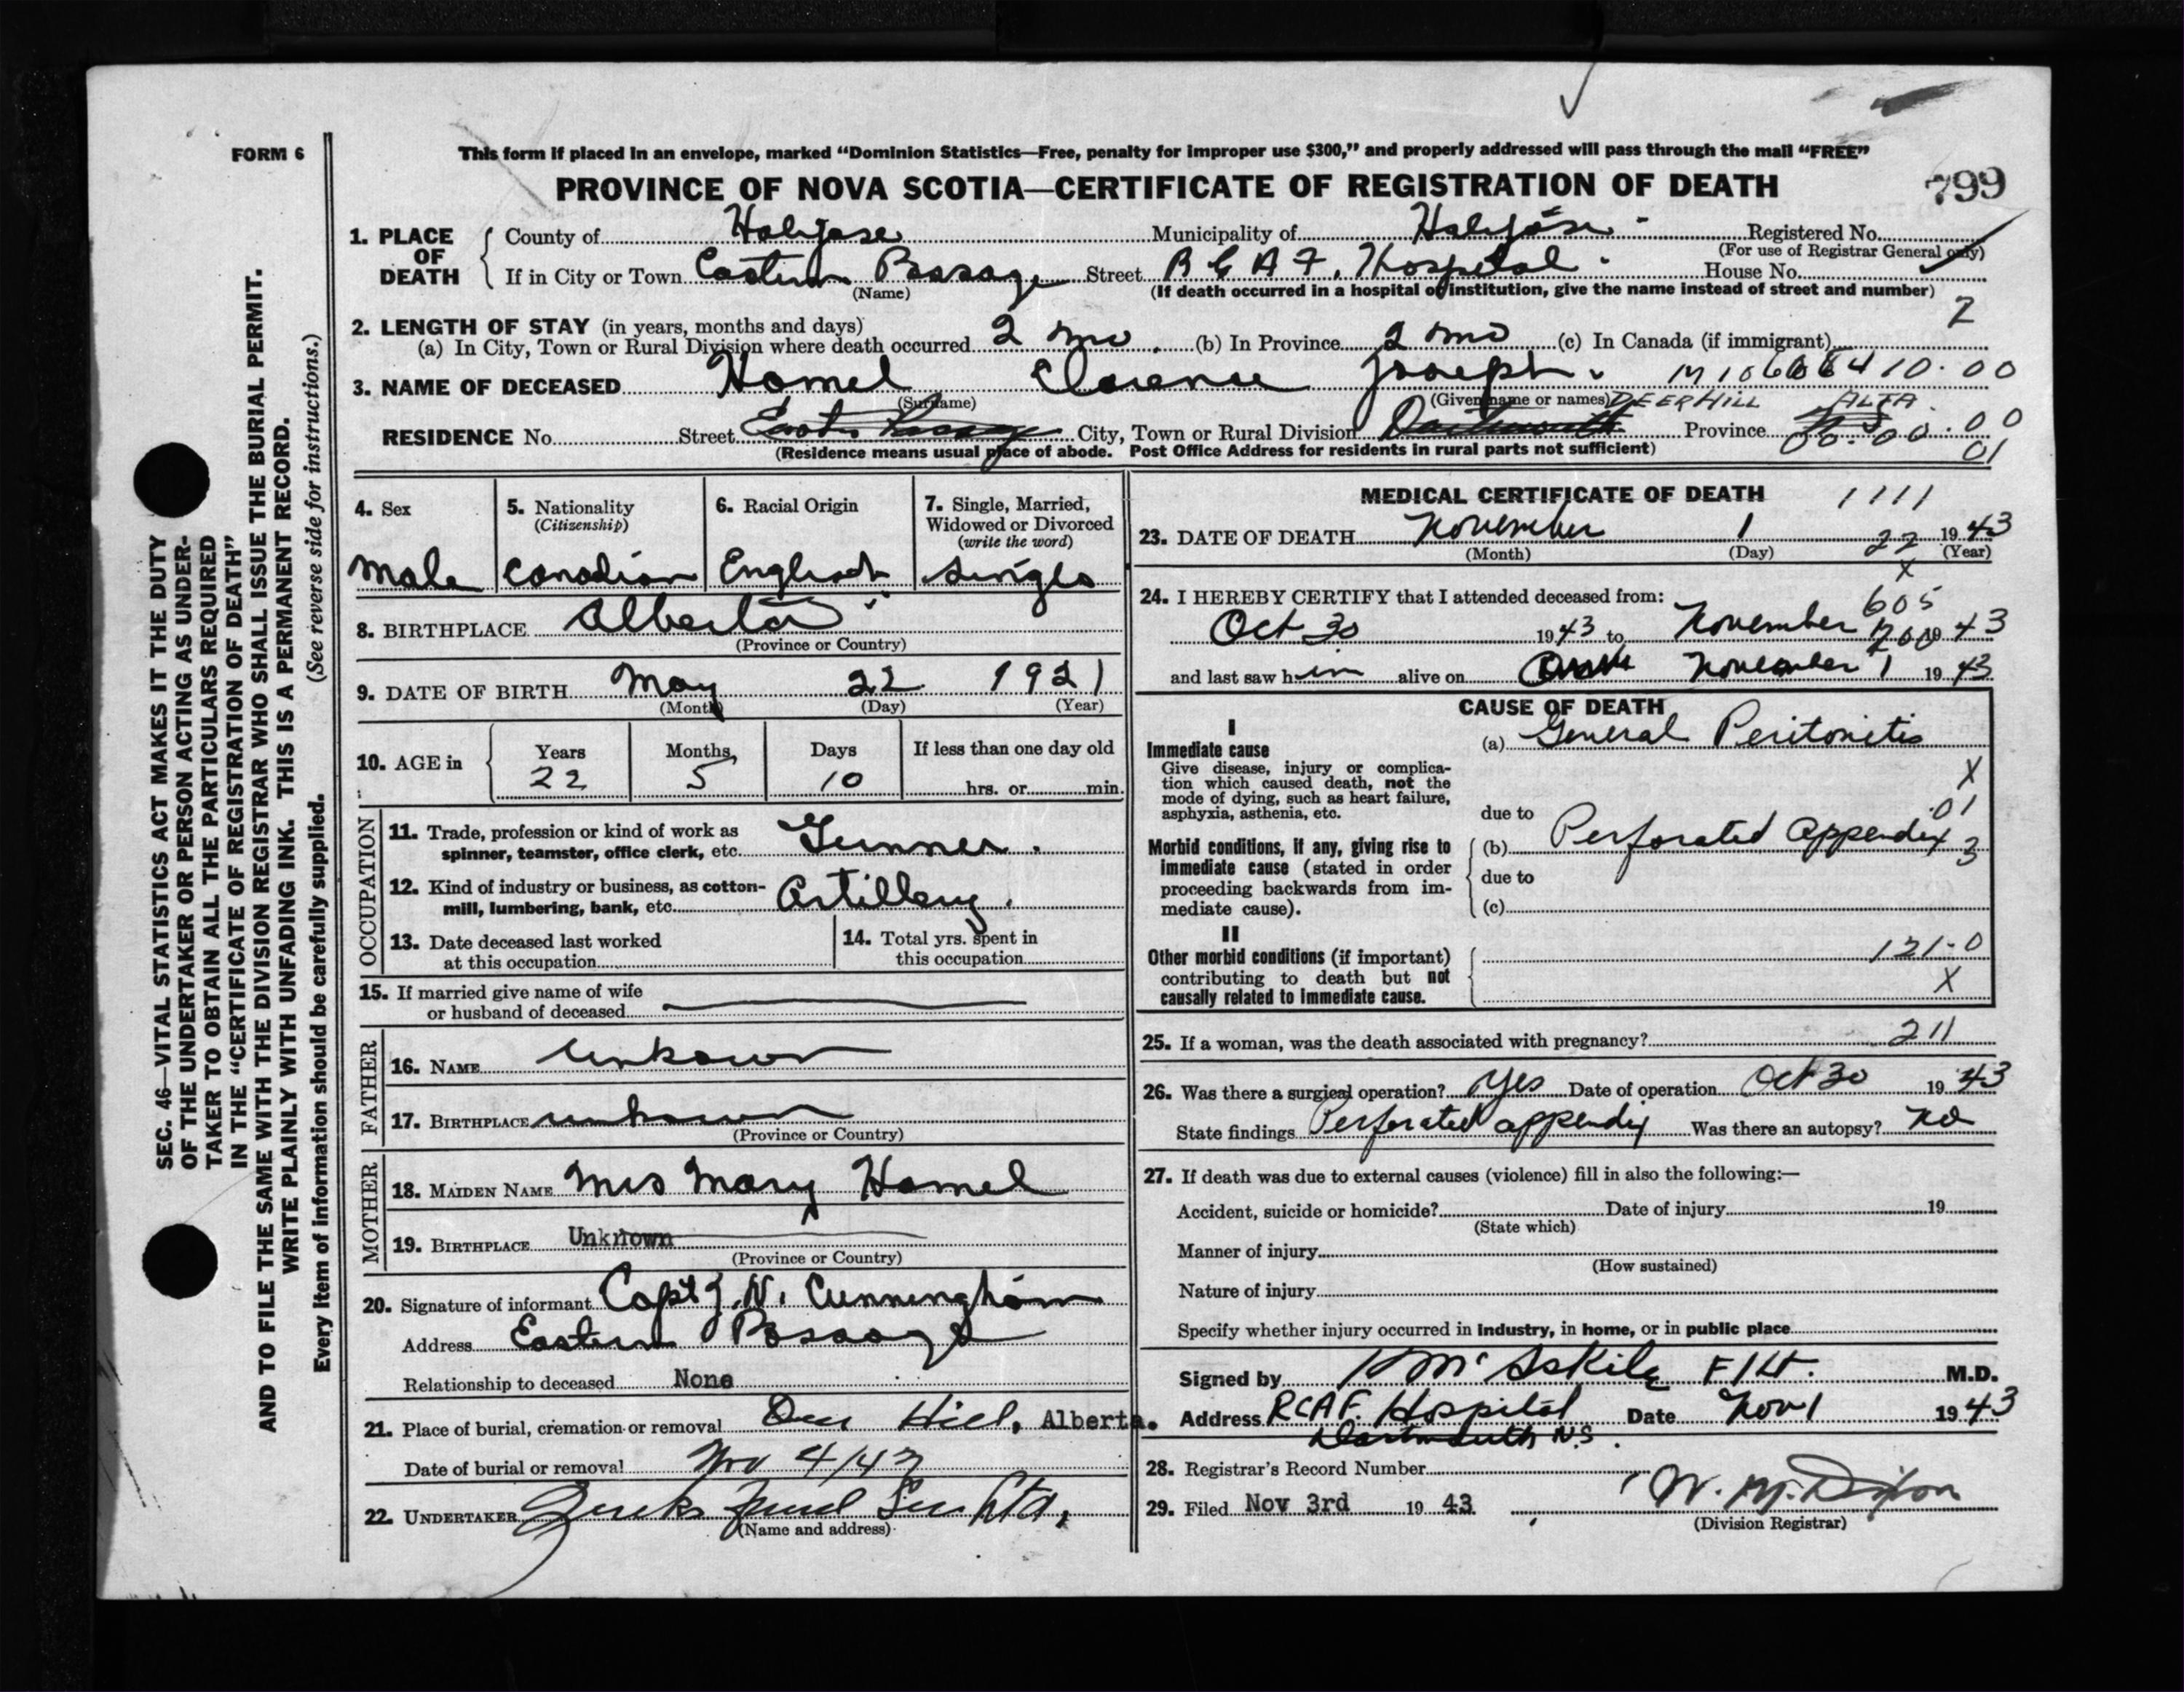 FORM 6
This form if placed in an envelope, marked “Dominion Statistics—Free, penalty for improper use $300,” and properly addressed will pass through the mail “FREE”
PROVINCE OF NOVA SCOTIA—CERTIFICATE OF REGISTRATION OF DEATH
799
SEC. 46—VITAL STATISTICS ACT MAKES IT THE DUTY
OF THE UNDERTAKER OR PERSON ACTING AS UNDER-
TAKER TO OBTAIN ALL THE PARTICULARS REQUIRED
IN THE “CERTIFICATE OF REGISTRATION OF DEATH”
AND TO FILE THE SAME WITH THE DIVISION REGISTRAR WHO SHALL ISSUE THE BURIAL PERMIT.
WRITE PLAINLY WITH UNFADING INK. THIS IS A PERMANENT RECORD.
Every item of information should be carefully supplied. (See reverse side for instructions.)
1. PLACE OF DEATH
County of Halifax Municipality of Halifax Registered No.
(For use of Registrar General only)
If in City or Town Eastern Passage Street R C A F. Hospital House No.
(Name) (If death occurred in a hospital or institution, give the name instead of street and number)
2
2. LENGTH OF STAY (in years, months and days)
(a) In City, Town or Rural Division where death occurred 2 mo. (b) In Province 2 mo (c) In Canada (if immigrant)
3. NAME OF DECEASED Hamel Clarence Joseph.
(Surname) (Given name or names) DEERHILL ALTA.
RESIDENCE No. Street Eastern Passage City, Town or Rural Division Dartmouth Province NS 00.00.00
(Residence means usual place of abode. Post Office Address for residents in rural parts not sufficient) 01
4. Sex
Male
5. Nationality
(Citizenship)
Canadian
6. Racial Origin
English
7. Single, Married,
Widowed or Divorced
(write the word)
Single
8. BIRTHPLACE Alberta
(Province or Country)
9. DATE OF BIRTH May 22 1921
(Month) (Day) (Year)
10. AGE in Years Months Days If less than one day old
22 5 10 hrs. or min.
OCCUPATION
11. Trade, profession or kind of work as
spinner, teamster, office clerk, etc. Gunner.
12. Kind of industry or business, as cotton-
mill, lumbering, bank, etc. Artillery.
13. Date deceased last worked
at this occupation
14. Total yrs. spent in
this occupation
15. If married give name of wife
or husband of deceased
FATHER
16. NAME unkown
17. BIRTHPLACE unkown
(Province or Country)
MOTHER
18. MAIDEN NAME Mrs Mary Hamel
19. BIRTHPLACE Unknown
(Province or Country)
20. Signature of informant Capt J. N. Cunningham
Address Eastern Passage
Relationship to deceased None
21. Place of burial, cremation or removal Deer Hill, Alberta.
Date of burial or removal Nov 4/43
22. UNDERTAKER Ltd.
(Name and address)
MEDICAL CERTIFICATE OF DEATH 1111
23. DATE OF DEATH November 1 1943
(Month) (Day) 22 (Year)
X
24. I HEREBY CERTIFY that I attended deceased from: 605
Oct 30 1943 to November 1943
and last saw h im alive on November 1 1943
CAUSE OF DEATH
I
Immediate cause
Give disease, injury or complica-
tion which caused death, not the
mode of dying, such as heart failure,
asphyxia, asthenia, etc.
(a) General Peritonitis
X
.01
due to
Morbid conditions, if any, giving rise to
immediate cause (stated in order
proceeding backwards from im-
mediate cause).
(b) Perforated Appendix 3
due to
(c)
II
Other morbid conditions (if important)
contributing to death but not
causally related to immediate cause.
121-0
X
25. If a woman, was the death associated with pregnancy? 211
26. Was there a surgical operation? Yes Date of operation Oct 30 1943
State findings Perforated appendix Was there an autopsy? No
27. If death was due to external causes (violence) fill in also the following:—
Accident, suicide or homicide? Date of injury 19
(State which)
Manner of injury
(How sustained)
Nature of injury
Specify whether injury occurred in industry, in home, or in public place
Signed by F/Lt. M.D.
Address RCAF. Hospital Date Nov 1 1943
Dartmouth N.S.
28. Registrar's Record Number
29. Filed Nov 3rd 1943 W. M. Dixon
(Division Registrar)